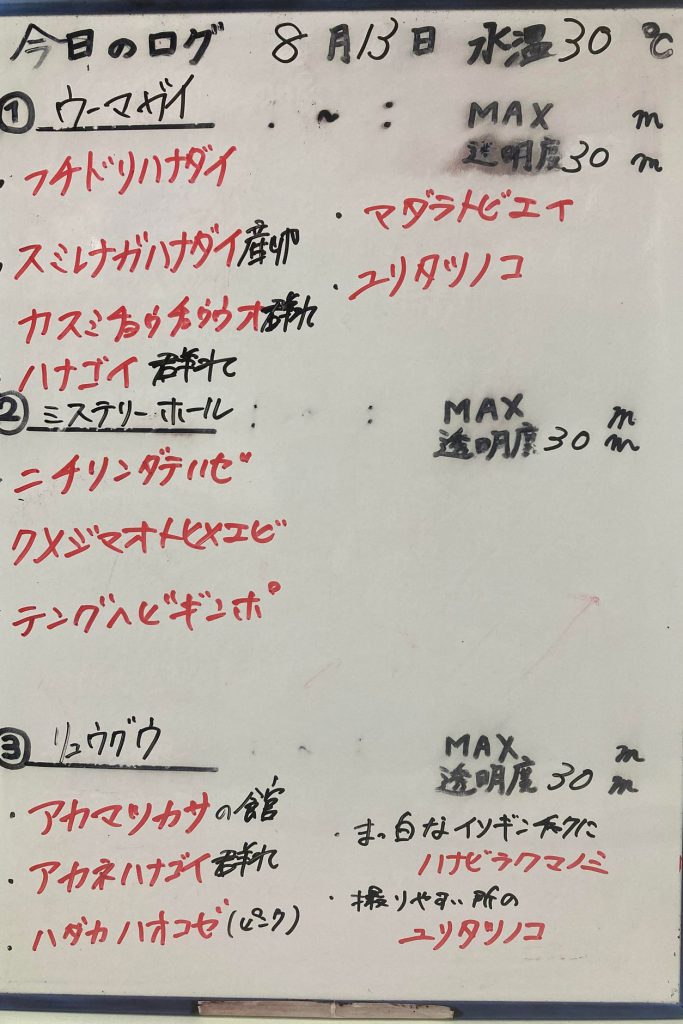 今日のログ 8月13日 水温30℃
① ウーマガイ . ~ : MAX m
透明度30m
・フチドリハナダイ
・マダラトビエイ
・スミレナガハナダイ産卵
・ユリタツノコ
カスミチョウチョウウオ群れ
・ハナゴイ 群れて
② ミステリーホール : : MAX m
透明度30m
・ニチリンダテハゼ
クメジマオトヒメエビ
テングヘビギンポ
③ リュウグウ MAX m
透明度30m
・アカマツカサの館
・アカネハナゴイ群れ
・ハダカハオコゼ(ピンク)
・まっ白なイソギンチャクに
ハナビラクマノミ
・撮りやすい所の
ユリタツノコ